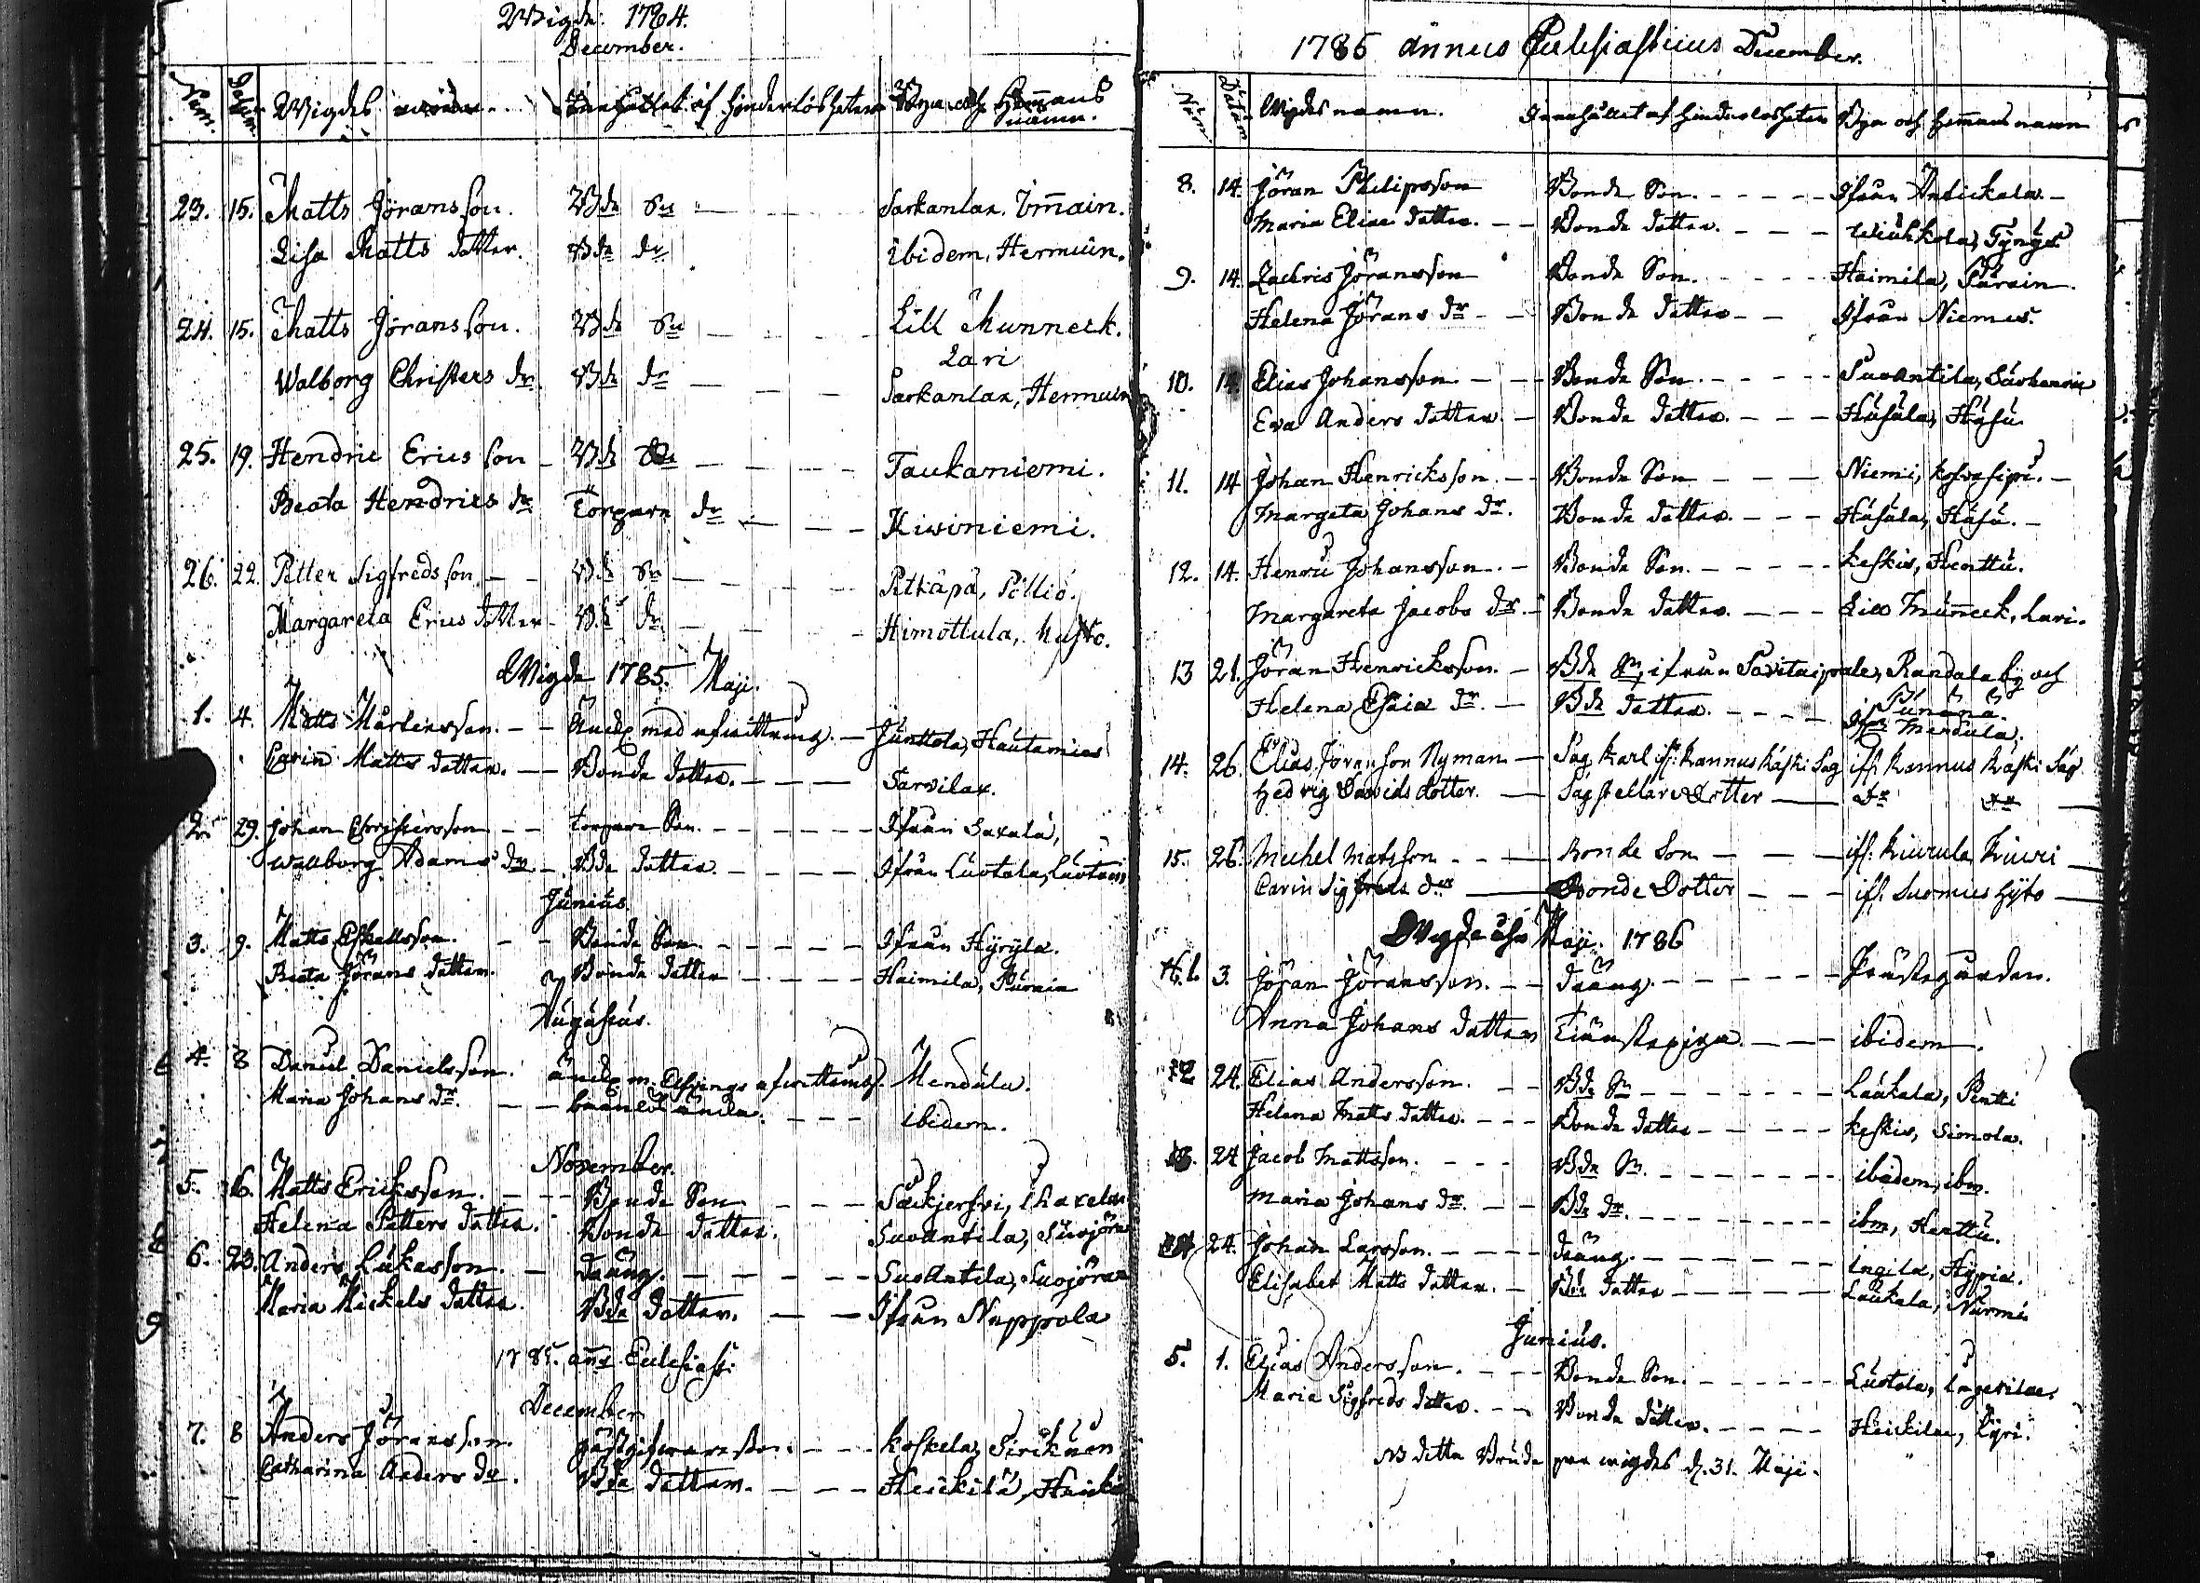 Wigde 1784.
December.
Num. Datum. Wigdes Innehållet af hinderlösheten Byα och Hemans namn.
23. 15. Matts Jöransson. Bde Sn Sarkanlax. Immain.
Lisa Matts dotter. Bde dr ibidem, Hermuin.
24. 15. Matts Jöransson. Bde Sn Lill Munneck.
Lari
Walborg Christers dr. Bde dr Sarkanlax, Hermuin
25. 19. Hendric Ericsson Bde Taukaniemi.
Beata Hendrics dr Torpare dr Kiwiniemi.
26. 22. Petter Sigfredsson. Bde Sn Pitkäpä, Pölliö.
Margareta Erics dotter Bde dr Himottula, Musto.
Wigde 1785. Maji.
1. 4. Matts Mårtensson. Änckl. med afwittring. Junttola, Hautamies
Carin Matts dotter. Bonde dotter. Sarvilax.
2. 29. Johan Christersson Torpare Son. Ifrån Saxala,
Wallborg Adams dr Bde dotter. Ifrån Luotola, Luotoin
Junius.
3. 9. Matts Eskellsson. Bonde Son. Ifrån Hyrylä.
Beata Jörans dotter. Bonde dotter Haimila, Pärain
Augustus.
4. 8 Daniel Danielsson. änckl. m. afwittring. Mendola.
Maria Johans dr. ibidem.
November.
5. 6. Matts Ericksson. Bonde Son Säckjerfvi,
Helena Petters dotter. Bonde dotter. Suvantila, Suojöran
6. 23. Anders Lukasson. dräng. Suvantila, Suojöran
Maria Mickels dotter. Bde dotter. Ifrån Nuppola
1785. ans Ecclesiast.
December
7. 8 Anders Jöransson. gästgifware son. Koskela, Sirikäen
Catharina Anders dr. Bde dotter. Heickilä, Heicki
1785 annus Ecclesiasticus December.
Num Datum Wigdes namn. Innehållet af hinderlösheten Bya och hemans namn
8. 14. Jöran Philipsson Bonde Son. Ifrån Anttickala
Maria Elias dotter. Bonde dotter. Wiuhkola, Tynys
9. 14. Zachris Jöransson Bonde Son. Haimila, Pärain.
Helena Jörans dr Bonde dotter Ifrån Niemis.
10. 14 Elias Johansson Bonde Son. Suvantila,
Eva Anders dotter. Bonde dotter. Häsälä, Häsä
11. 14 Johan Henricksson. Bonde Son Niemi,
Margeta Johans dr. Bonde dotter. Häsälä, Häsä.
12. 14. Henric Johansson. Bonde Son. Keskis, Henttu.
Margareta Jacobs dr. Bonde dotter. Lill Munneck, Lari.
13 21. Jöran Henricksson. Bde Sn, ifrån Savitaipale, Randala by och
Punana.
Helena Esaia dr. Bde dotter. Ifrån Mendola.
14. 26. Elias Joransson Nyman Såg Karl ifr: Kannus Kåski Såg ifr. Kannus Kåski Såg
Hedvig Davids dotter. Sågställare dotter dr dr
15. 26. Michel Matsson Bonde Son ifr: Kiurula Kiuri
Carin Sigfrids dr Bonde Dotter ifr. Suomies Hyto
Wigde Maji. 1786
1. 3. Jöran Jöransson. dräng. Prästegården.
Anna Johans dotter Tiänstepiga. ibidem.
2 24. Elias Andersson. Bde Sn Laukala, Pentti
Helena Matts dotter. Bonde dotter Keskis, Simola.
3. 24 Jacob Mattsson. Bde Sn. ibidem, ibm.
Maria Johans dr. Bde dr. ibm, Henttu.
4 24. Johan Larsson. dräng. Ingila, Hypiä.
Elisabet Matts dotter. Bde dotter Laukala, Nurmi
Junius.
5. 1. Elias Andersson. Bonde Son. Luotola,
Maria Sigfreds dotter. Bonde dotter. Heickilä, Kyri.
NB detta Brude par wigdes d. 31. Maji.